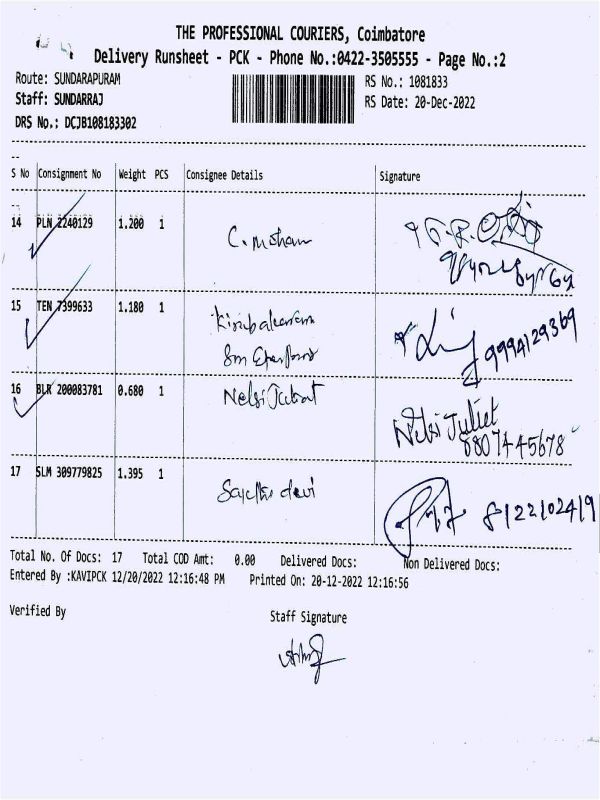 THE PROFESSIONAL COURIERS, Coimbatore
Delivery Runsheet - PCK - Phone No.:0422-3505555 - Page No.:2
Route: SUNDARAPURAM
RS No.: 1081833
Staff: SUNDARRAJ
RS Date: 20-Dec-2022
DRS No.: DCJB108183302
S No Consignment No Weight PCS Consignee Details Signature
14 PLN 2240129 1.200 1 C. Mohan
15 TEN 7399633 1.180 1 9994129369
16 BLR 200083781 0.680 1 Nelsi Juliat
Nelsi Juliet
8807445678
17 SLM 309779825 1.395 1 devi
Total No. Of Docs: 17 Total COD Amt: 0.00 Delivered Docs: Non Delivered Docs:
Entered By :KAVIPCK 12/20/2022 12:16:48 PM Printed On: 20-12-2022 12:16:56
Verified By
Staff Signature